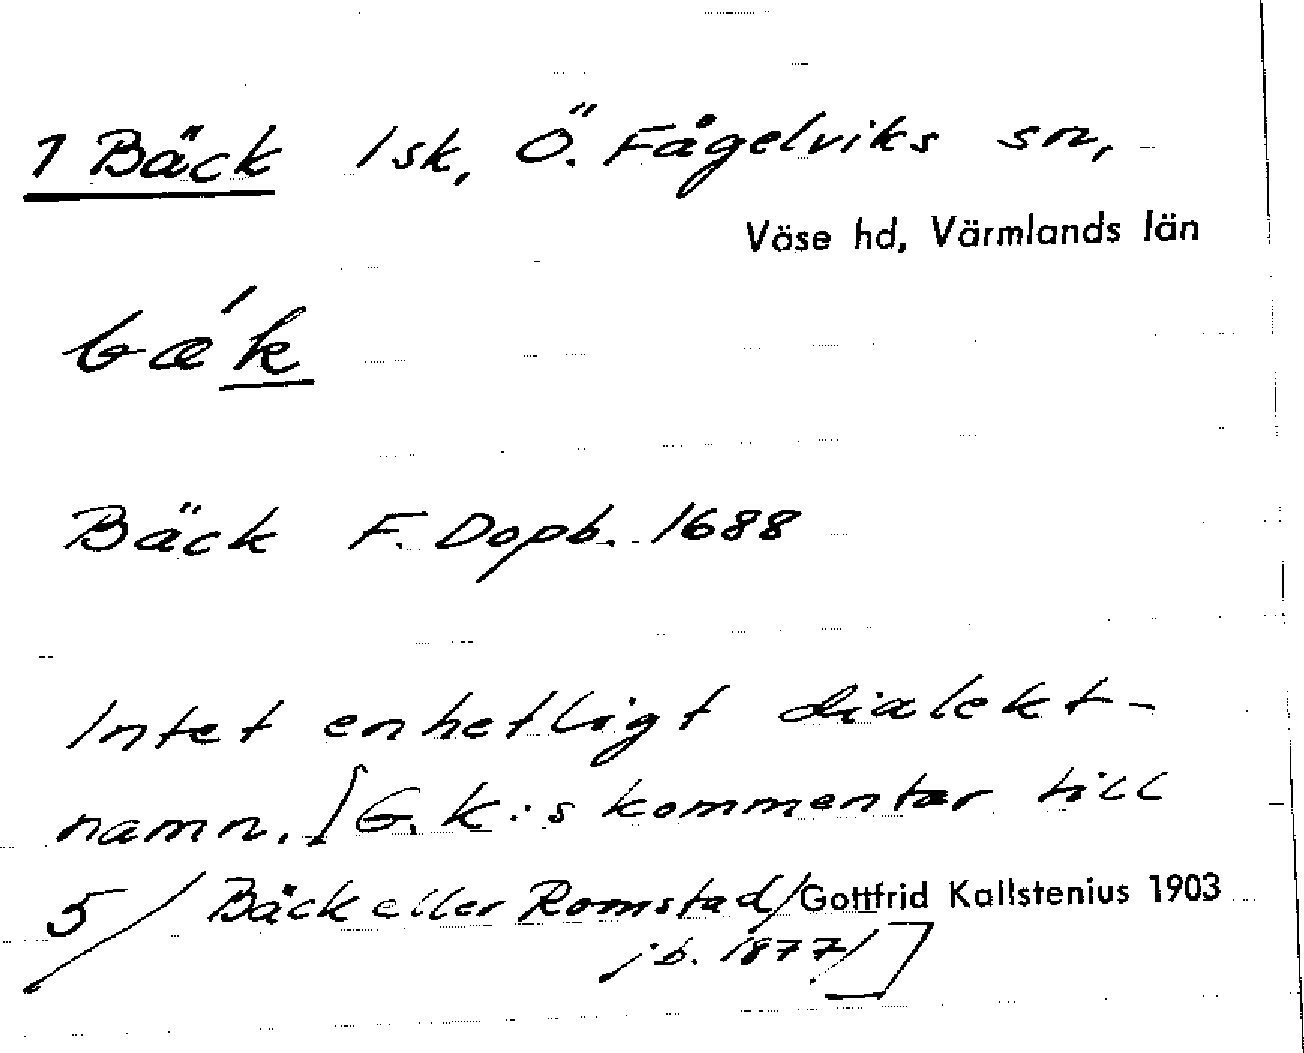 1 Bäck 1sk, Ö. Fågelviks sn,
Väse hd, Värmlands län
bæ´k
Bäck F. Dopb. 1688
Intet enhetligt dialekt-
namn. [G.K:s kommentar till
5/ Bäck eller Romstad/Gottfrid Kallstenius 1903
jb. 1877/]